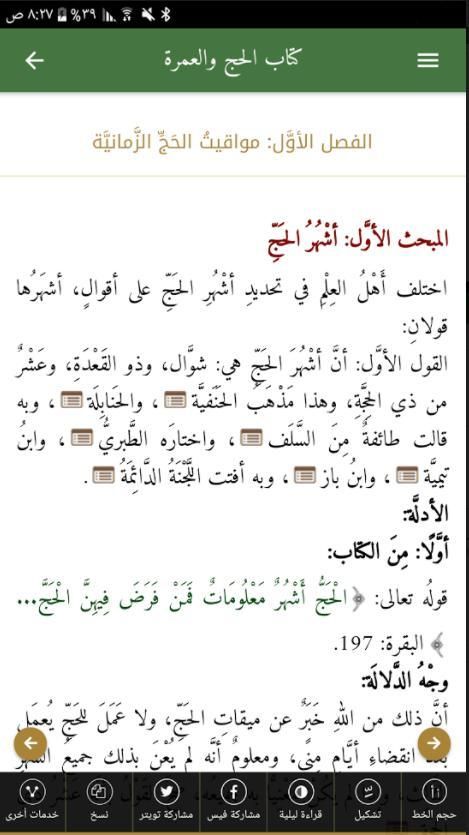 ٨:٢٧ ص ٣٩%
كتاب الحج والعمرة
الفصل الأوَّل: مواقيتُ الحَجِّ الزَّمانيَّة
المبحث الأوَّل: أشْهُرُ الحَجِّ
اختلف أَهْلُ العِلْمِ في تحديدِ أشْهُرِ الحَجِّ على أقوالٍ، أشهَرُها
قولانِ:
القول الأوَّل: أنَّ أشْهُرَ الحَجِّ هي: شوَّال، وذو القَعْدَةِ، وعَشْرٌ
من ذي الحِجَّةِ، وهذا مَذْهَبُ الحَنَفيَّة ، والحَنابِلَة ، وبه
قالت طائفةٌ مِنَ السَّلَف ، واختارَه الطَّبريُّ ، وابنُ
تيميَّة ، وابنُ باز ، وبه أفتت اللَّجْنَةُ الدَّائِمَةُ .
الأدلَّة:
أوَّلًا: مِنَ الكتاب:
قولُه تعالى: ﴿ الْحَجُّ أَشْهُرٌ مَعْلُومَاتٌ فَمَنْ فَرَضَ فِيهِنَّ الْحَجَّ...
﴾ البقرة: 197.
وجْهُ الدَّلالَة:
أنَّ ذلك من اللهِ خَبَرٌ عن ميقاتِ الحَجِّ، ولا عَمَلَ للحَجِّ يُعمَلُ
بعدَ انقضاءِ أيَّامِ مِنًى، ومعلومٌ أنَّه لم يُعْنَ بذلك جميعُ الشَّهرِ
حجم الخط
تشكيل
قراءة ليلية
مشاركة فيس
مشاركة تويتر
نسخ
خدمات أخرى